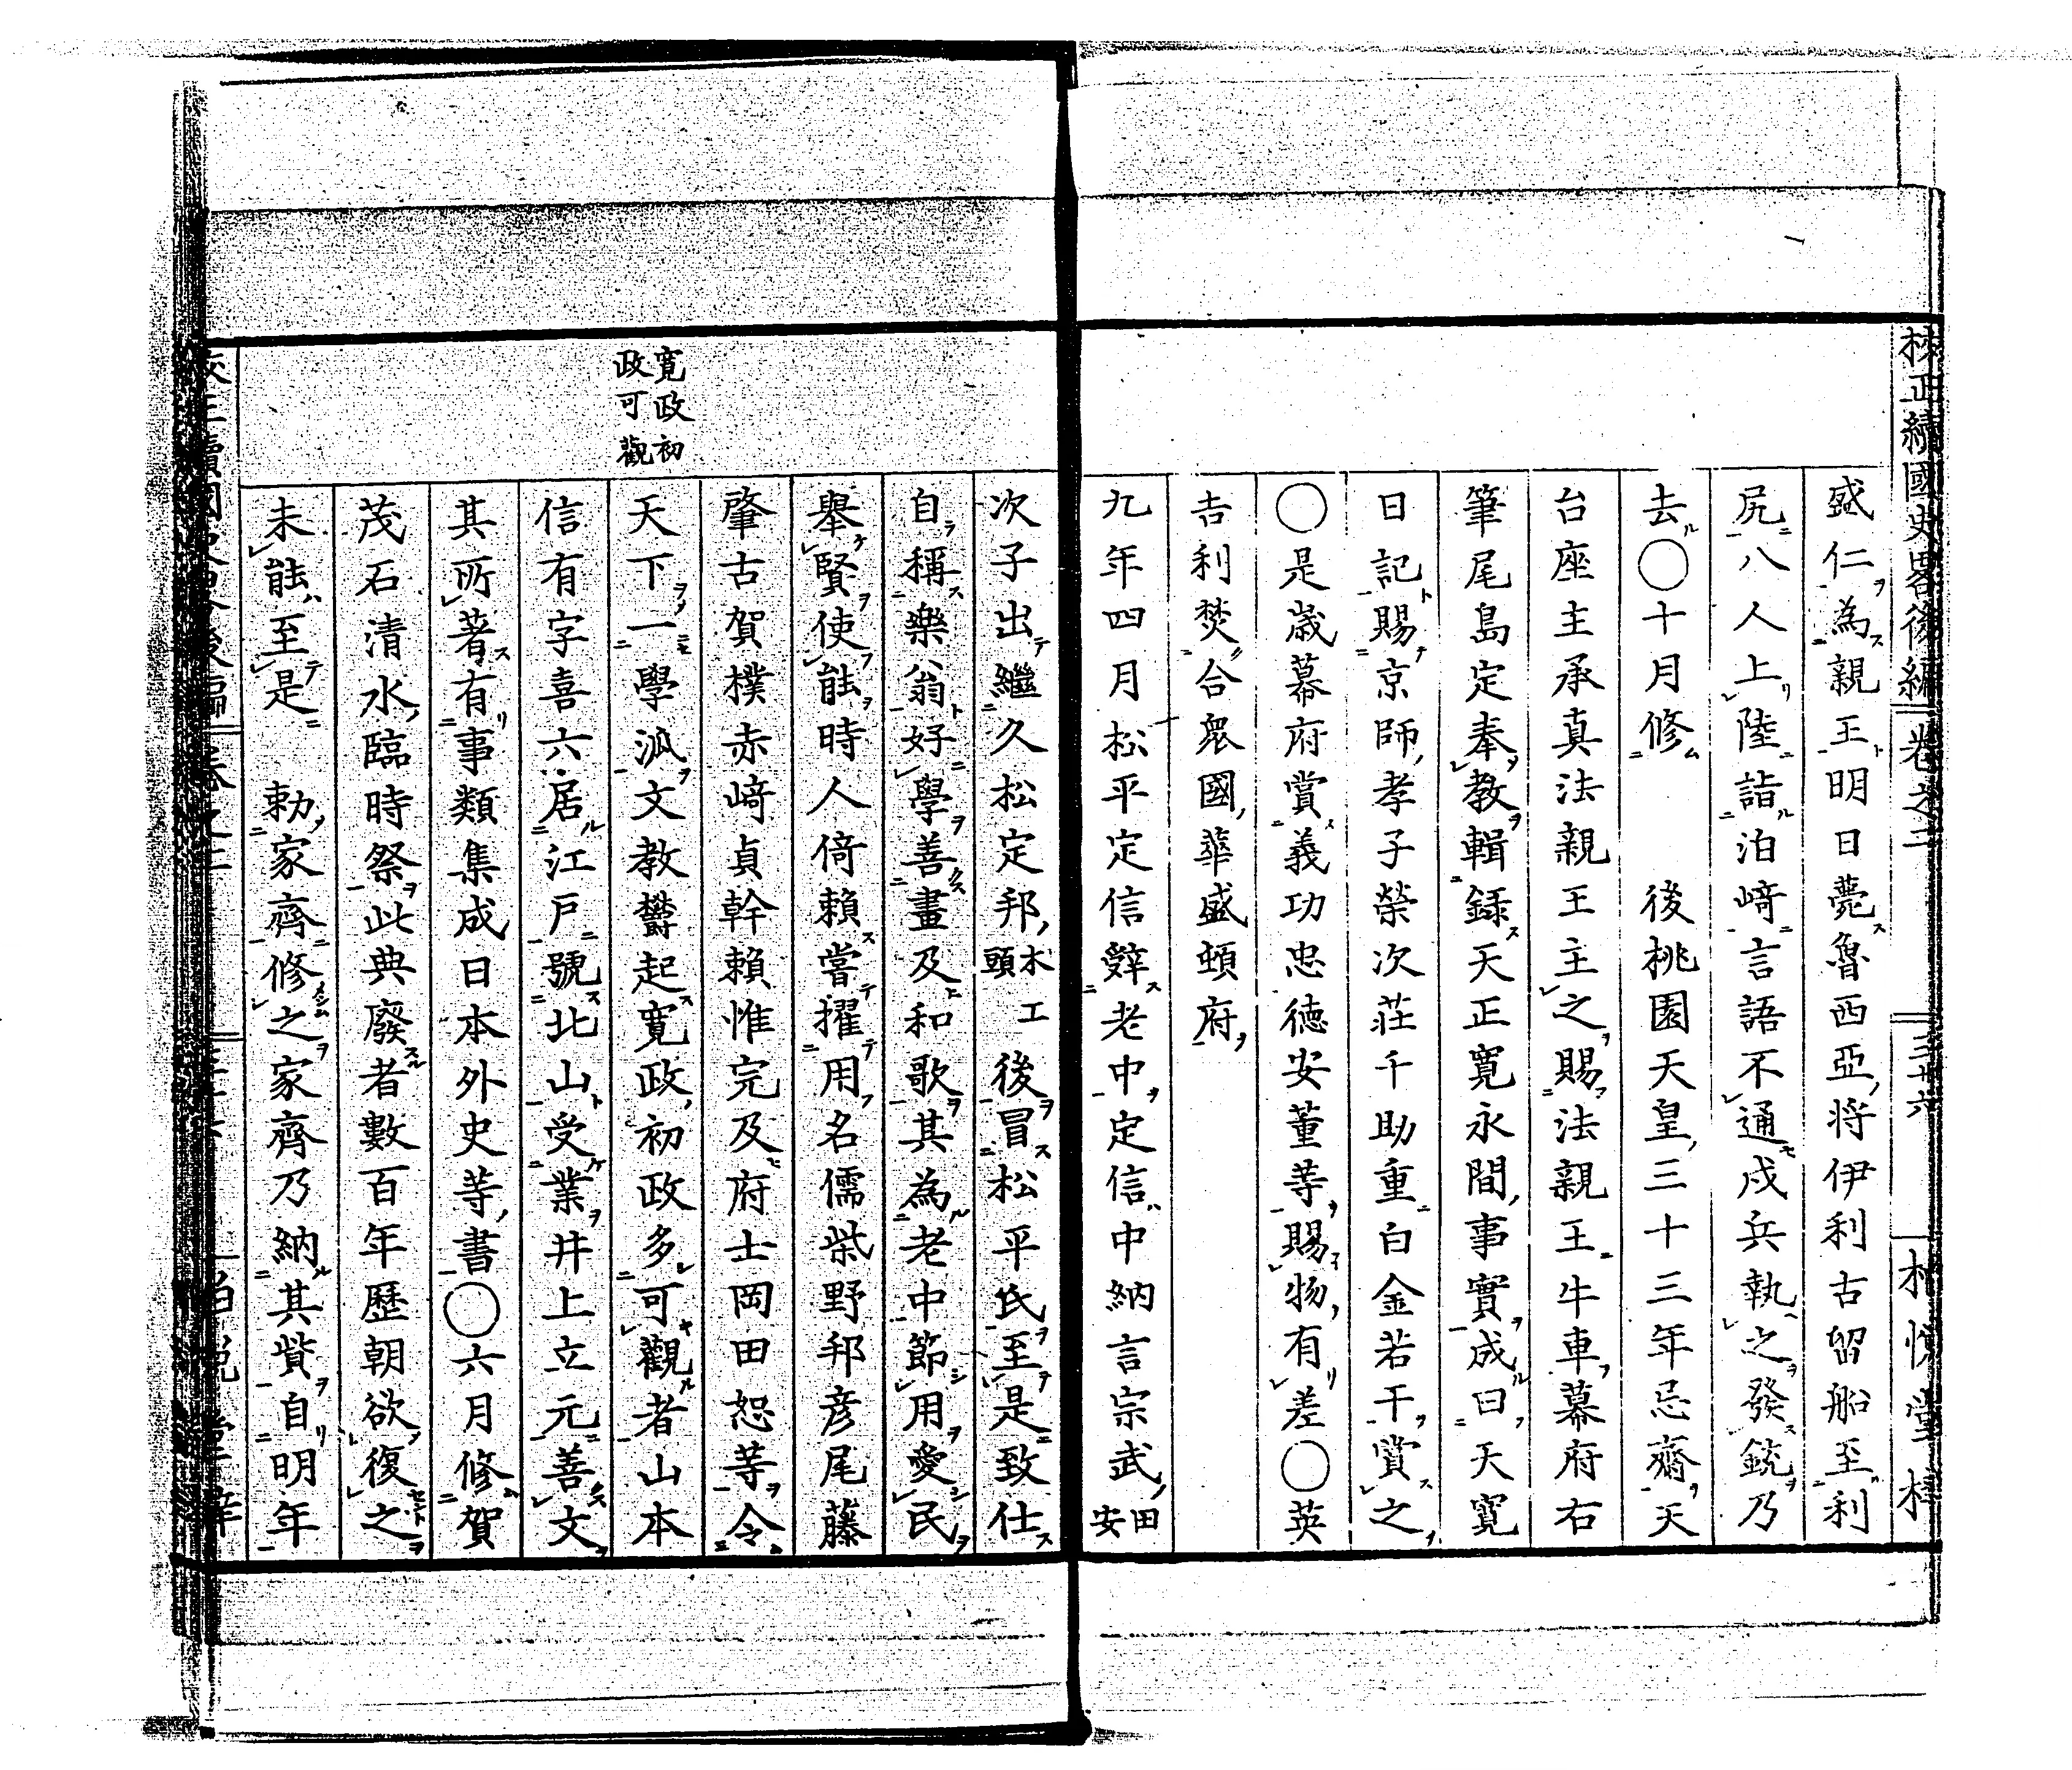 校正續國史畧後編 卷之二 三十六
盛仁為親王明日薨魯西亞將伊利古留船至利
尻八人上陸詣泊﨑言語不通戍兵執之發銃乃
去○十月修 後桃園天皇三十三年忌齋天
台座主承真法親王主之賜法親王牛車幕府右
筆尾島定奉教輯録天正寛永間事實成曰天寛
日記賜京師孝子榮次莊千助重白金若干賞之
○是歳幕府賞義功忠徳安董等賜物有差○英
吉利焚合衆國華盛頓府
九年四月松平定信辭老中定信中納言宗武田安
次子出繼久松定邦木工頭後冒松平氏至是致仕
自稱樂翁好學善畫及和歌其為老中節用愛民
舉賢使能時人倚賴嘗擢用名儒柴野邦彦尾藤
肇古賀樸赤﨑貞幹賴惟完及府士岡田恕等令
天下一學派文教欝起寛政初政多可觀者山本
信有字喜六居江戸號北山受業井上立元善文
其所著有事類集成日本外史等書○六月修賀
茂石清水臨時祭此典廢者數百年歷朝欲復之
未能至是 勅家齊修之家齊乃納其貲自明年
寛政初
政可觀